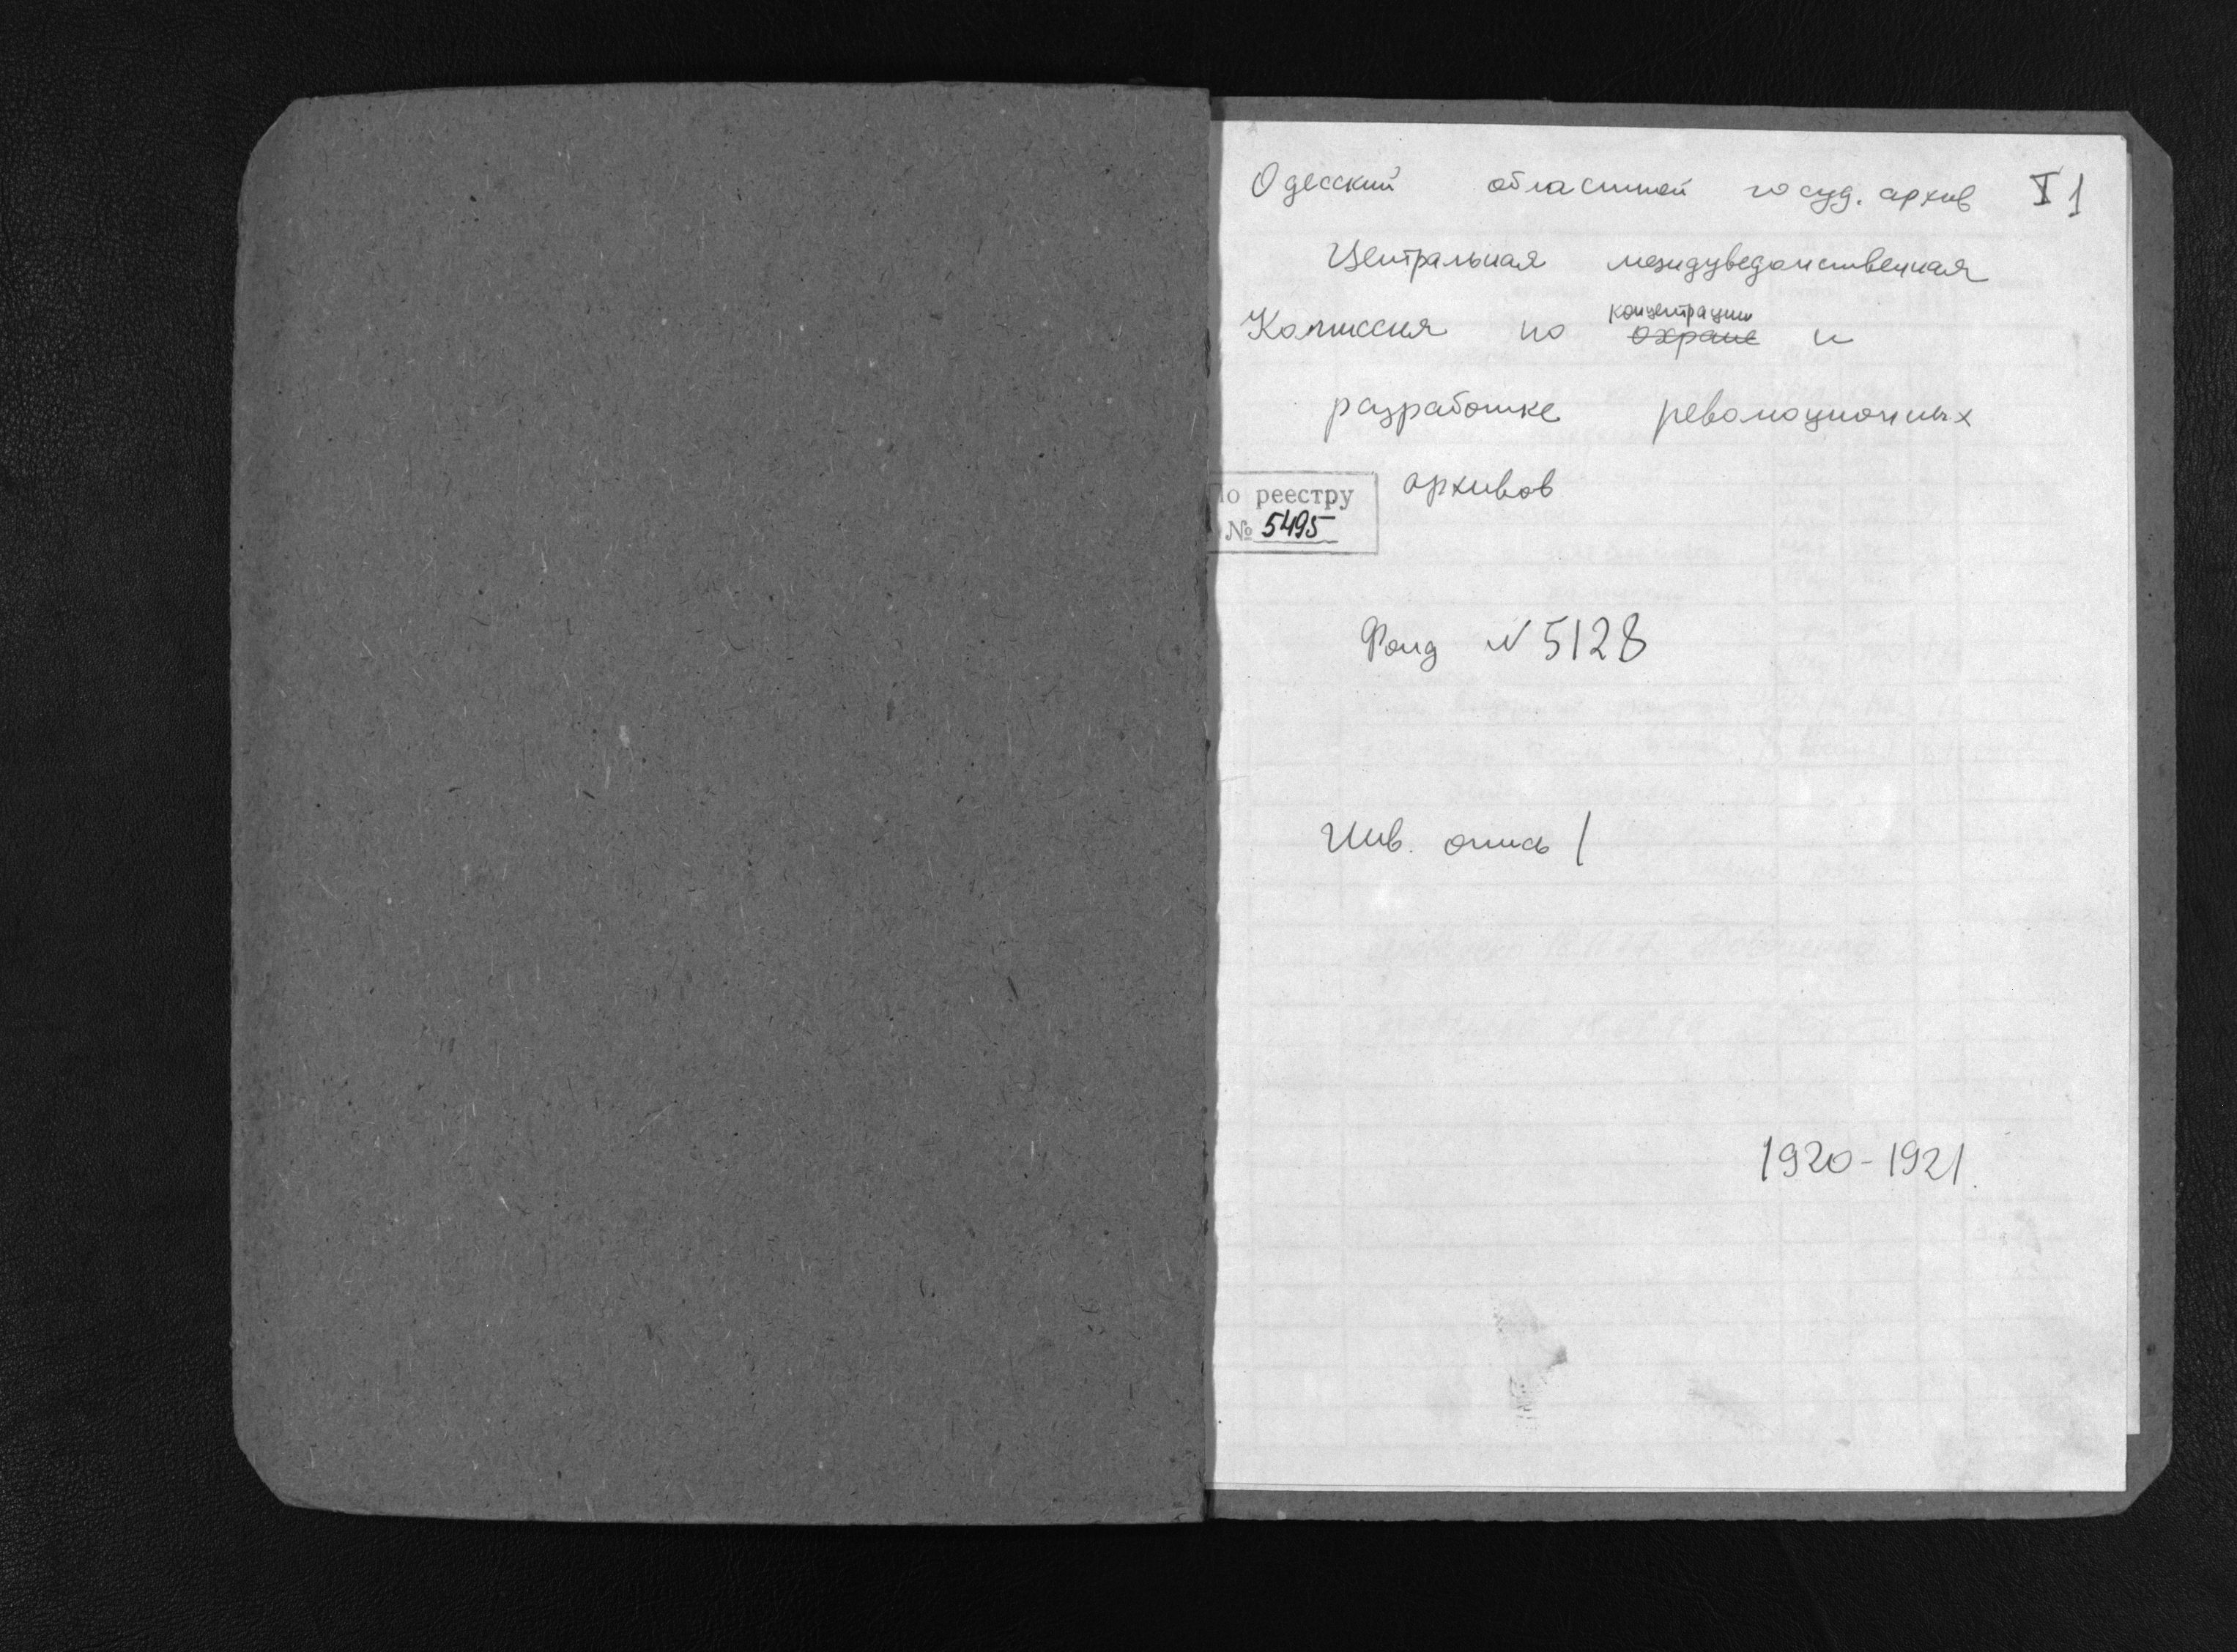 Одесский областной госуд. архив I 1
Центральная междуведомственная
концентрации
Комиссия по охране и
разработке революционных
архивов
По реестру
№ 5495
Фонд № 5128
Инв. опись 1
1920-1921.